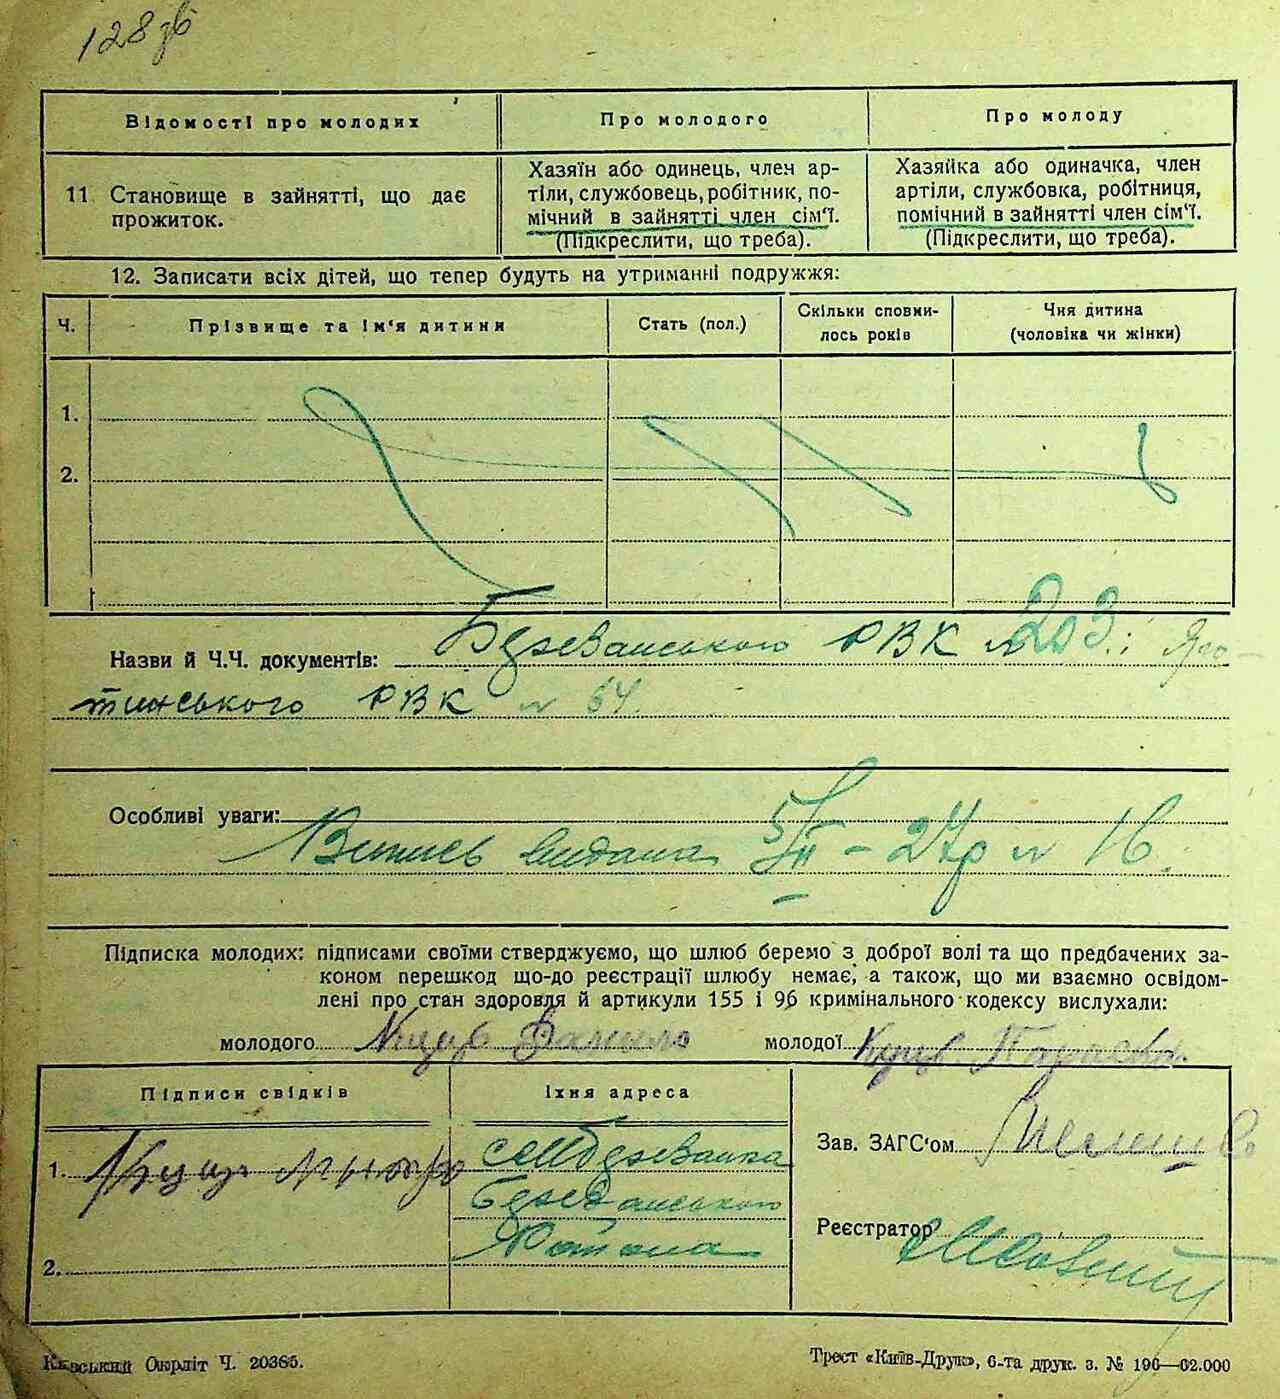 128 зв
Відомості про молодих
Про молодого
Про молоду
11 Становище в зайнятті, що дає
прожиток.
Хазяїн або одинець, член ар-
тіли, службовець, робітник, по-
мічний в зайнятті член сім'ї.
(Підкреслити, що треба).
Хазяйка або одиначка, член
артіли, службовка, робітниця,
помічний в зайнятті член сім'ї.
(Підкреслити, що треба).
12. Записати всіх дітей, що тепер будуть на утриманні подружжя:
Ч.
Прізвище та ім'я дитини
Стать (пол.)
Скільки сповни-
лось років
Чия дитина
(чоловіка чи жінки)
1.
2.
Назви й Ч.Ч. документів: РВК № 203.; Яго-
тинського РВК № 54.
Особливі уваги:
Випись видана 5/II – 27р № 16.
Підписка молодих: підписами своїми стверджуємо, що шлюб беремо з доброї волі та що предбачених за-
коном перешкод що-до реєстрації шлюбу немає, а також, що ми взаємно освідом-
лені про стан здоровля й артикули 155 і 96 кримінального кодексу вислухали:
молодого Данило молодої Параска
Підписи свідків
Їхня адреса
1.
2.
Района
Зав. ЗАГС'ом
Реєстратор
Київський Окрліт Ч. 20365.
Трест «Київ-Друк», 6-та друк. з. № 196—62.000